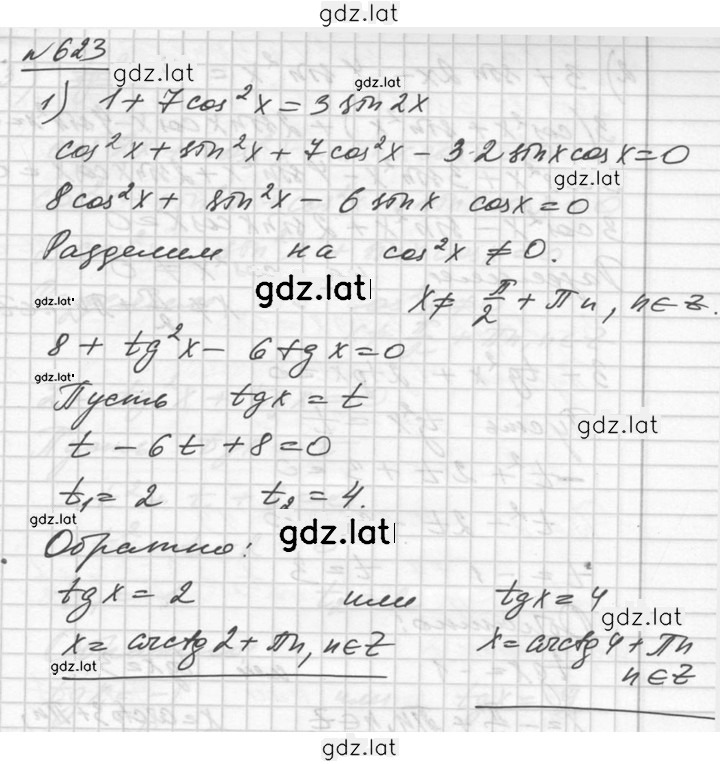 gdz.lat
№623
gdz.lat
gdz.lat
1) 1 + 7cos²x = 3 sin2x
cos²x + sin²x + 7cos²x - 3·2 sinx cosx = 0
gdz.lat
8cos²x + sin²x - 6 sinx cosx = 0
Разделим на cos²x ≠ 0.
gdz.lat
gdz.lat
x ≠ π/2 + πn, n∈Z.
8 + tg²x - 6tgx = 0
gdz.lat
Пусть tgx = t
gdz.lat
t - 6t + 8 = 0
t₁ = 2 t₂ = 4.
gdz.lat
gdz.lat
Обратно:
tgx = 2 или tgx = 4
gdz.lat
x = arctg2 + πn, n∈Z x = arctg4 + πn
gdz.lat
n∈Z
gdz.lat